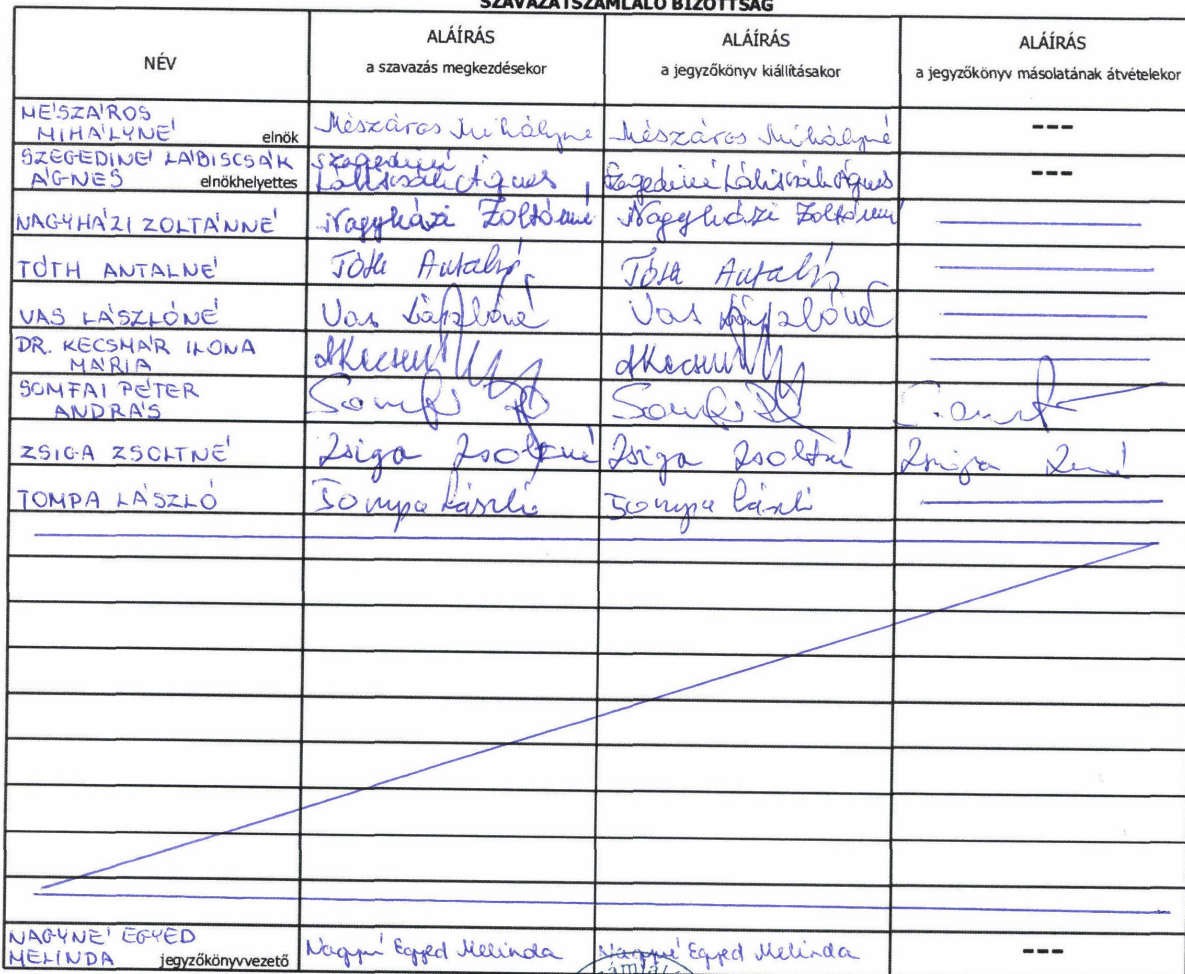 SZAVAZATSZÁMLÁLÓ BIZOTTSÁG
NÉV
ALÁÍRÁS
a szavazás megkezdésekor
ALÁÍRÁS
a jegyzőkönyv kiállításakor
ALÁÍRÁS
a jegyzőkönyv másolatának átvételekor
MÉSZÁROS
MIHÁLYNÉ elnök
Mészáros Mihályné
Mészáros Mihályné
---
SZEGEDINÉ LABISCSÁK
ÁGNES elnökhelyettes
Szegediné
Labiscsák Ágnes
Szegediné Labiscsák Ágnes
---
NAGYHÁZI ZOLTÁNNÉ
Nagyházi Zoltánné
Nagyházi Zoltánné
TÓTH ANTALNÉ
Tóth Antalné
Tóth Antalné
VAS LÁSZLÓNÉ
Vas Lászlóné
Vas Lászlóné
DR. KECSMÁR ILONA
MÁRIA
SOMFAI PÉTER
ANDRÁS
ZSIGA ZSOLTNÉ
Zsiga Zsoltné
Zsiga Zsoltné
Zsiga
TOMPA LÁSZLÓ
Tompa László
Tompa László
NAGYNÉ EGYED
MELINDA jegyzőkönyvvezető
Nagyné Egyed Melinda
Nagyné Egyed Melinda
---